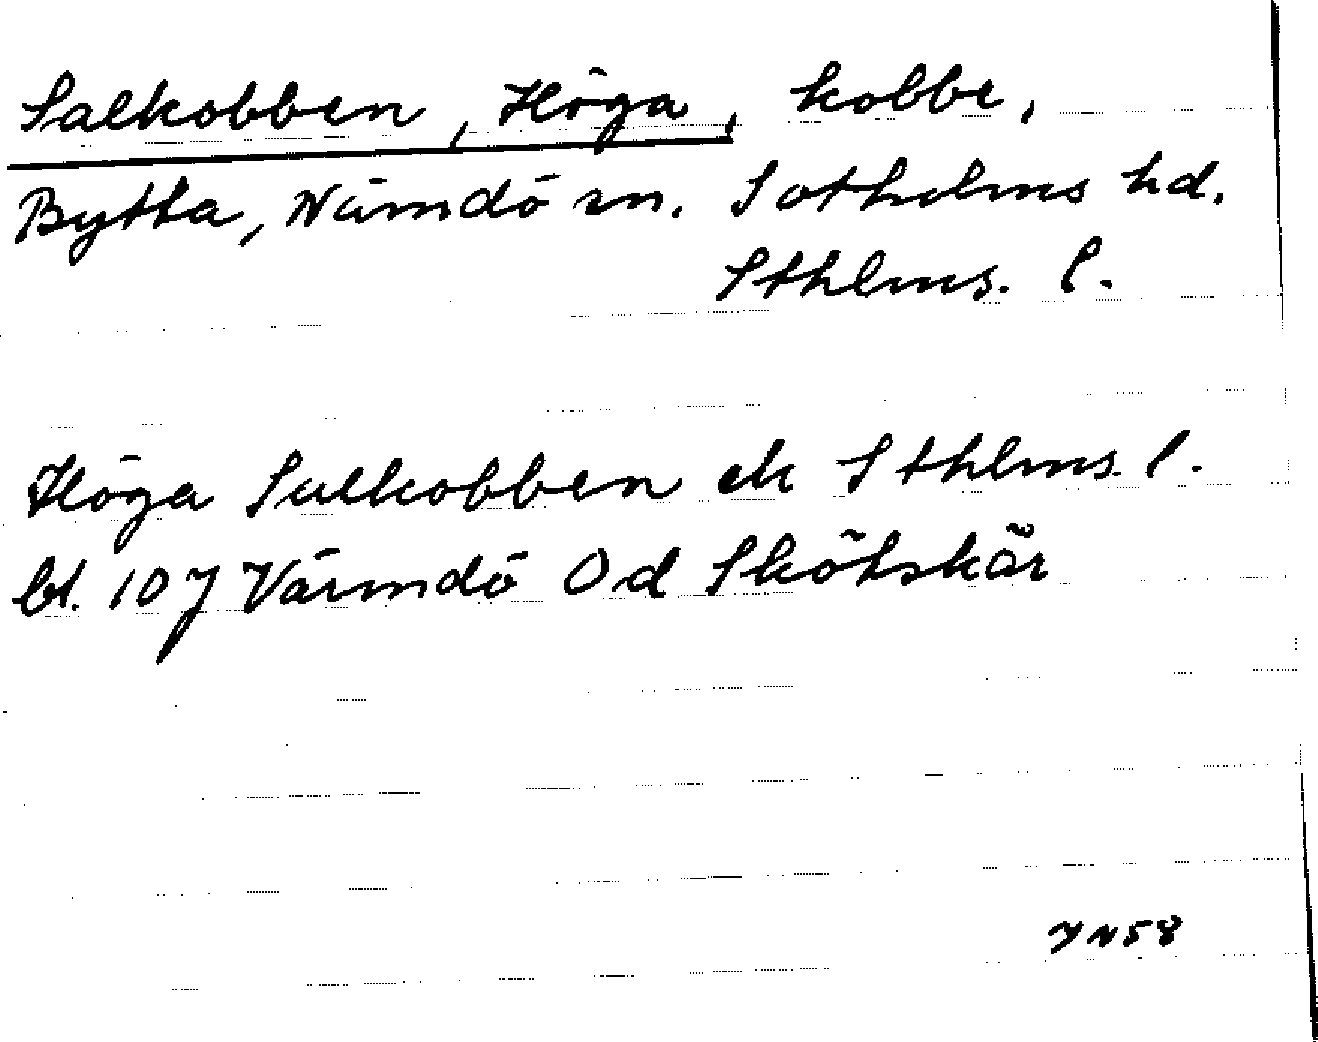 Salkobben, Höga, kobbe,
Bytta, Nämdö sn. Sotholms hd.
Sthlms. l.
Höga Salkobben ek Sthlms l.
bl. 107 Värmdö Od Skötskär
YN58